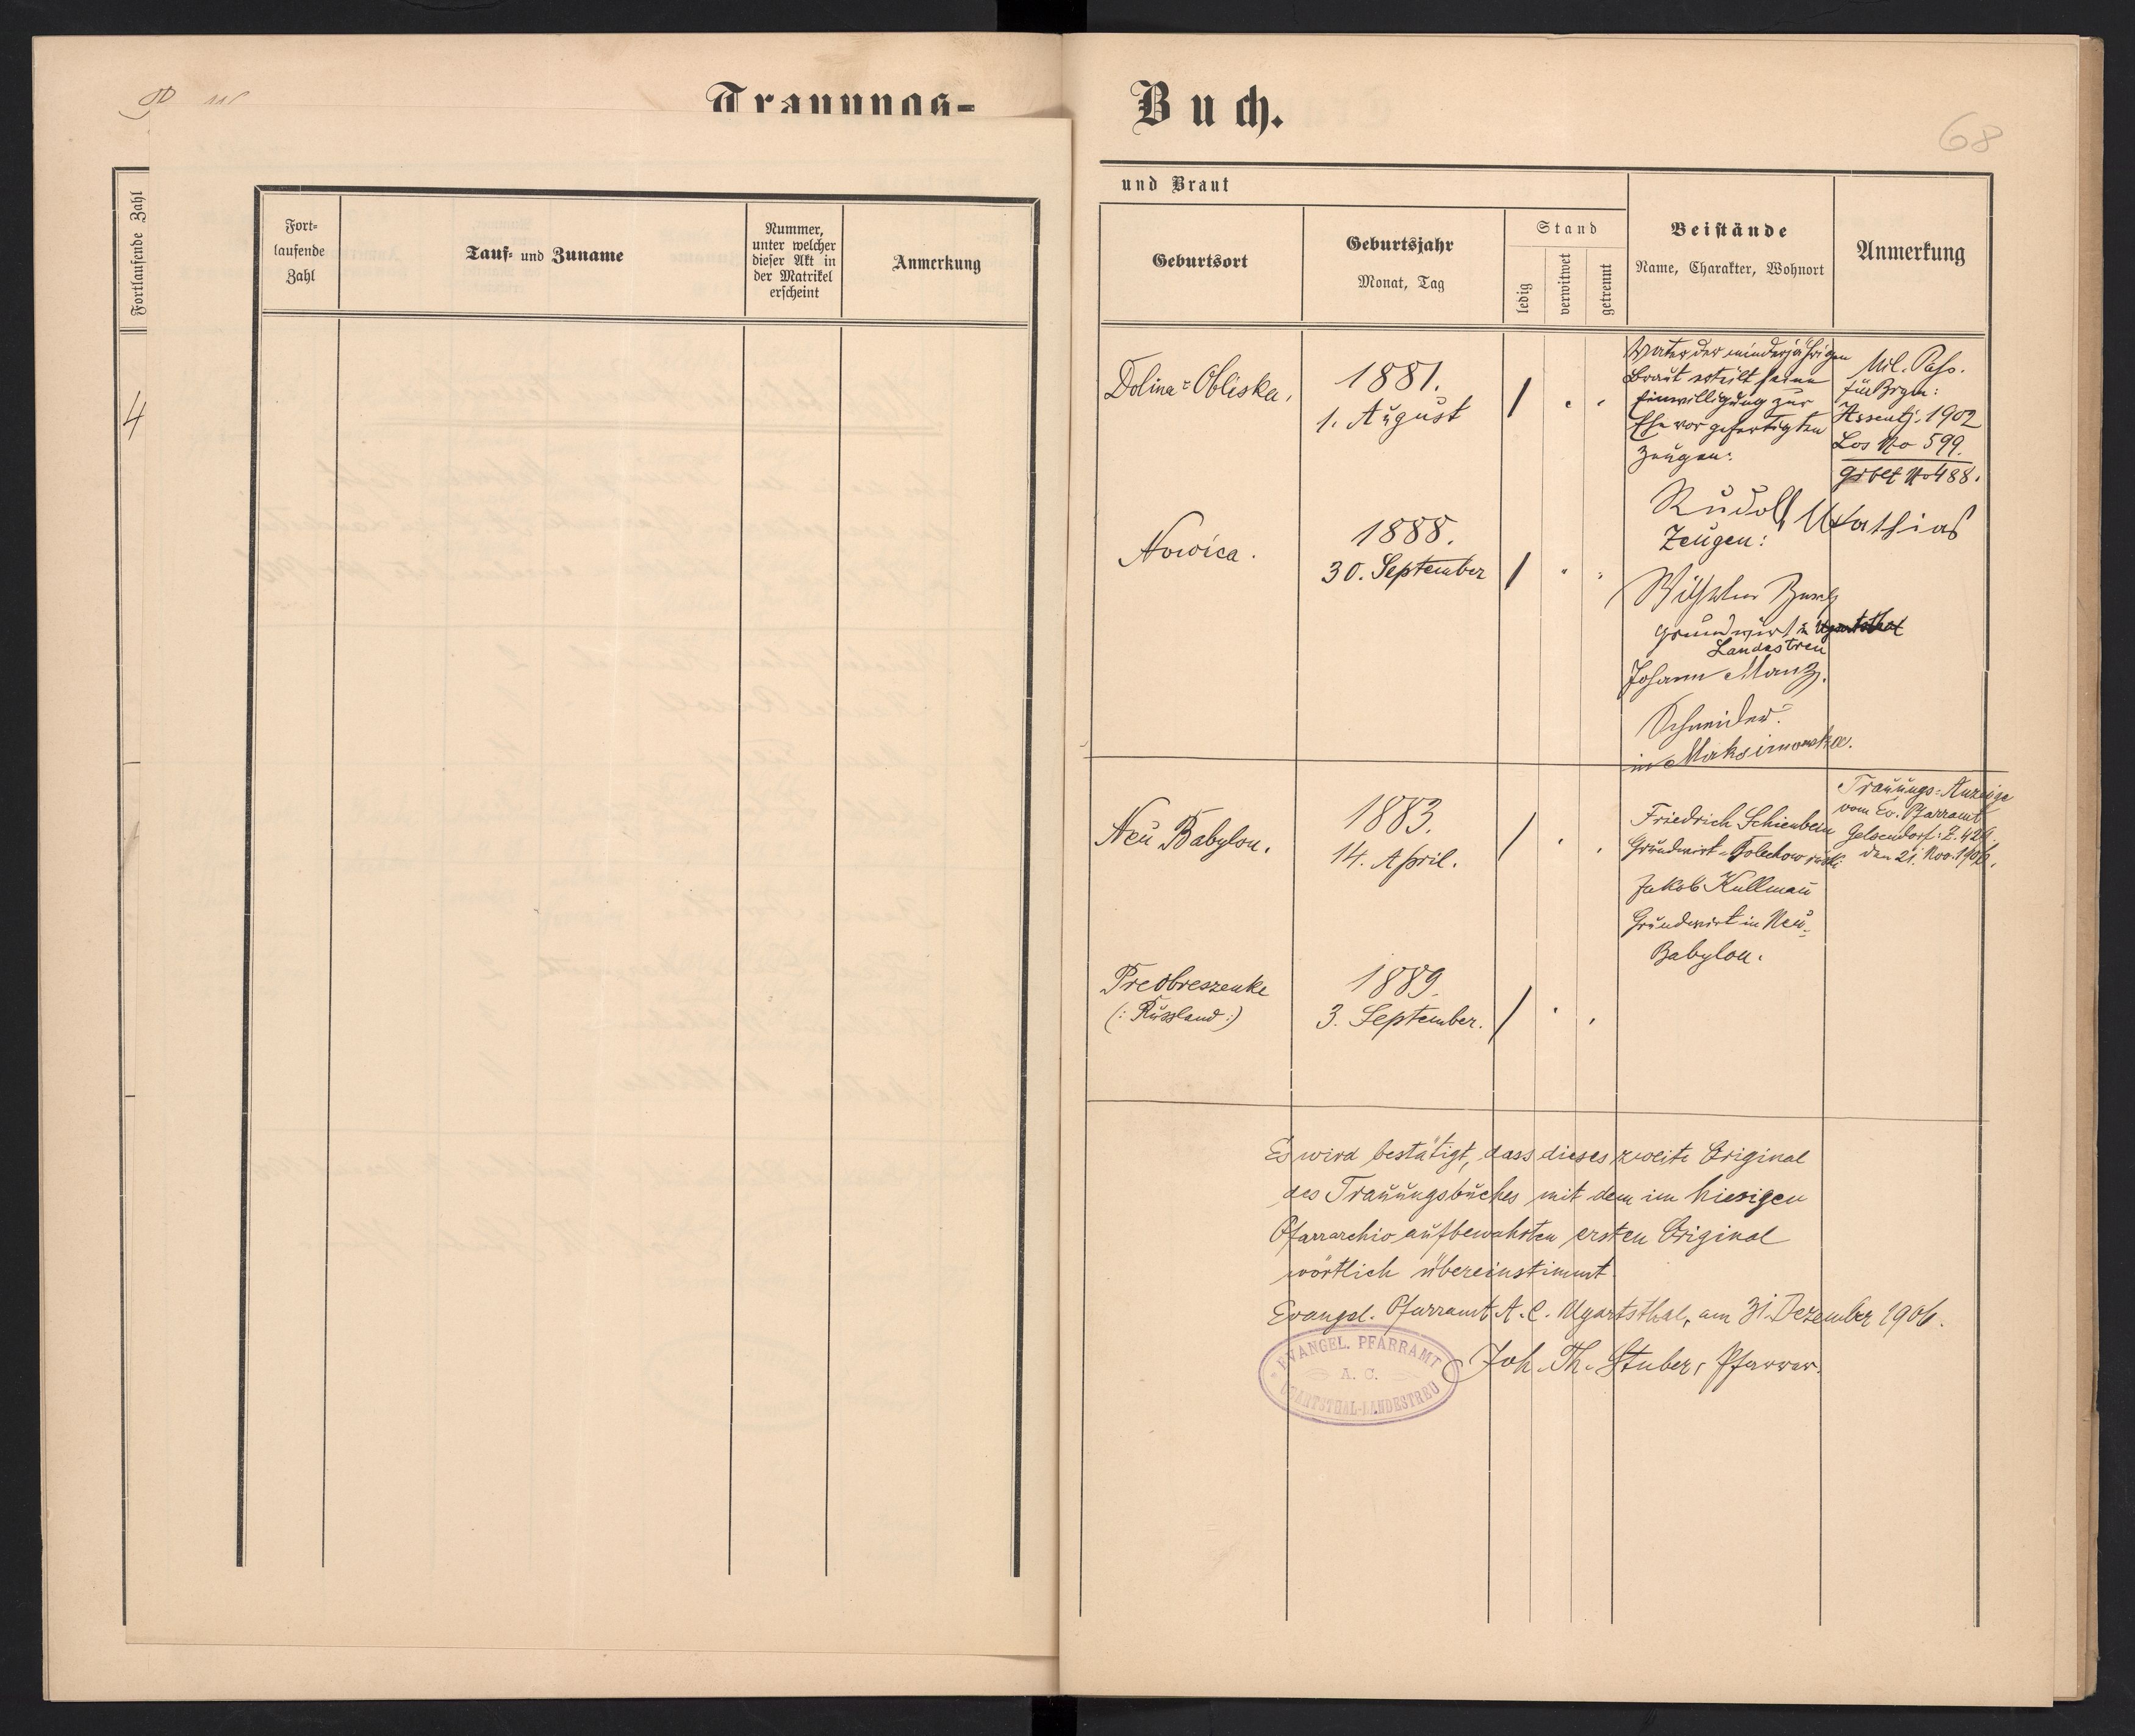 Trauungs-
Fortlaufende Zahl
4
Fort-
laufende
Zahl
Tauf- und Zuname
Nummer,
unter welcher
dieser Akt in
der Matrikel
erscheint
Anmerkung
Buch.
68
und Braut
Geburtsort
Geburtsjahr
Monat, Tag
Stand
ledig
verwitwet
getrennt
Beistände
Name, Charakter, Wohnort
Anmerkung
Dolina-Obliska,
1881.
1. August
Vater der minderjährigen
Braut erteilt seine
Einwilligung zur
Ehe vor gefertigten
Zeugen:
Rudolf Mathias
Zeugen:
Mil. Pass.
für Brgm:
Assentj. 1902
Los No 599.
Grbbl No 488.
Nowica.
1888.
30. September
Wilhelm
Grundwirt in Ugartsthal
Landestreu
Johann Manz.
Schneider.
in Maksimowka.
Neu Babylon.
1883.
14. April.
Friedrich Schienbein
Grundwirt
Jakob Kullmann
Grundwirt in Neu-
Babylon.
Trauungs-Anzeige
vom Ev. Pfarramt
Gelsendorf: Z. 429
den 21. Nov. 1906.
Preobreszenke
(: Russland :)
1889.
3. September.
Es wird bestätigt, dass dieses zweite Original
des Trauungsbuches mit dem im hiesigen
Pfarrarchiv aufbewahrten ersten Original
wörtlich übereinstimmt.
Evangel. Pfarramt A. C. Ugartsthal, am 31. Dezember 1906.
Joh. Th. Stuber, Pfarrer.
EVANGEL. PFARRAMT
A. C.
UGARTSTHAL-LANDESTREU